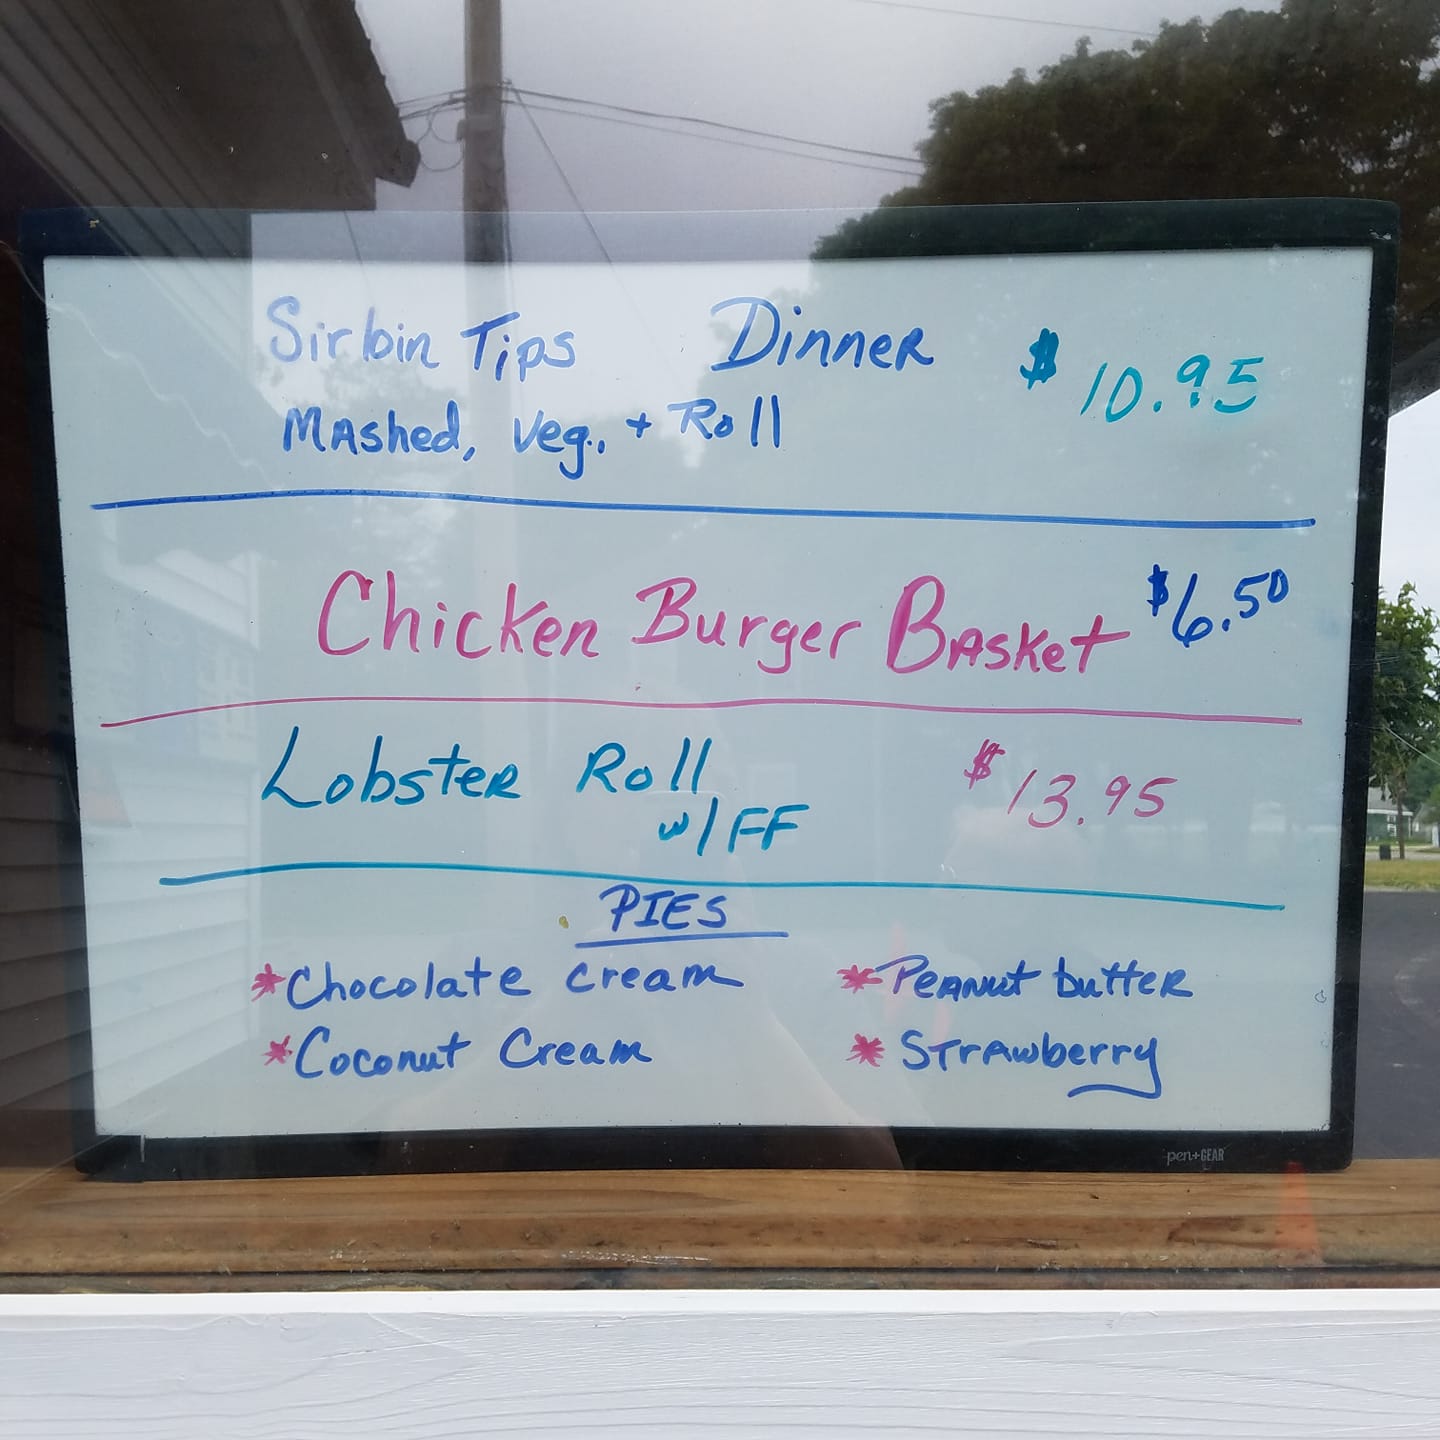 Sirloin Tips Dinner $10.95
Mashed, Veg., + Roll
Chicken Burger Basket $6.50
Lobster Roll $13.95
w/FF
PIES
*Chocolate cream *Peanut butter
*Coconut Cream *Strawberry
pen+GEAR